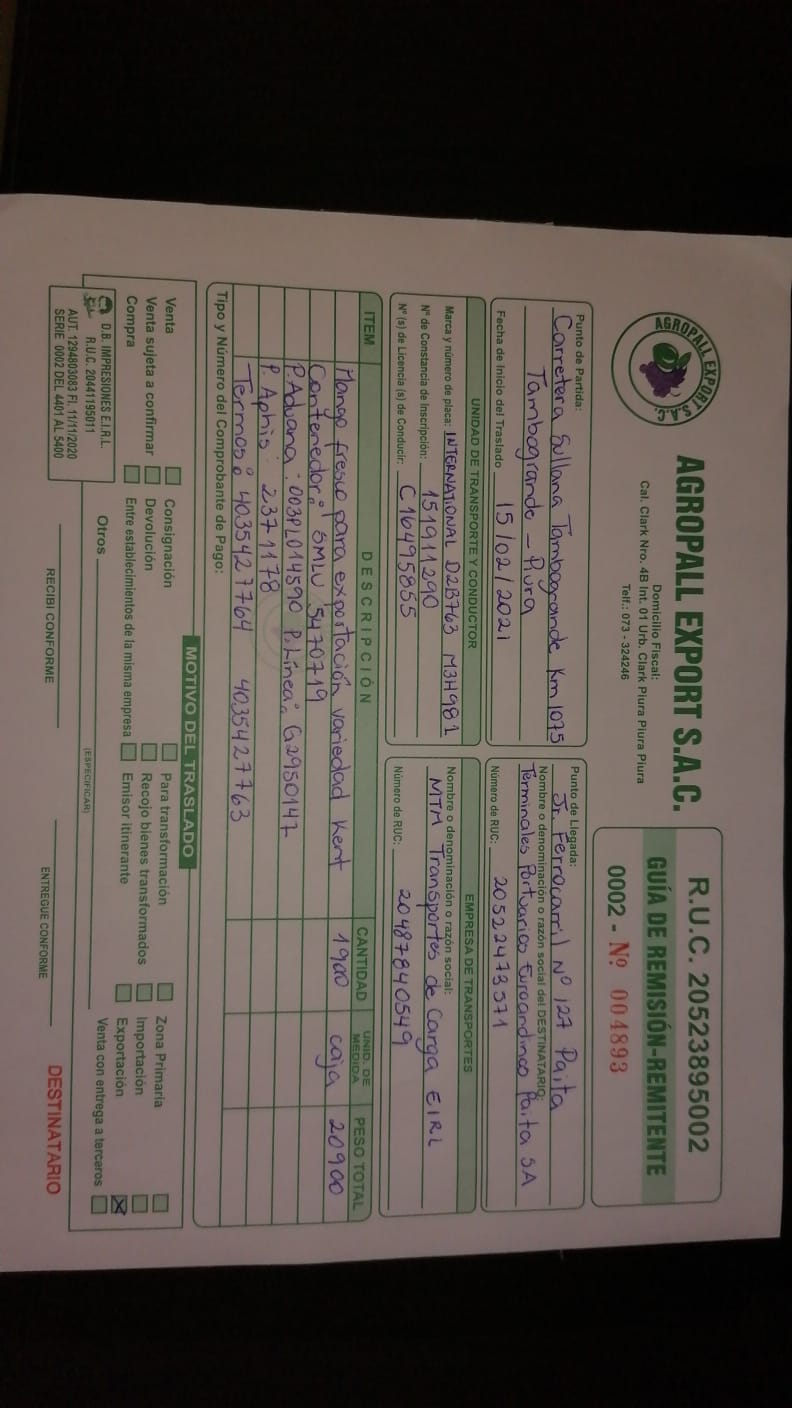 AGROPALL EXPORT S.A.C.
AGROPALL EXPORT S.A.C.
Domicilio Fiscal:
Cal. Clark Nro. 4B Int. 01 Urb. Clark Piura Piura Piura
Telf.: 073 - 324246
R.U.C. 20523895002
GUÍA DE REMISIÓN-REMITENTE
0002 - Nº 004893
Punto de Partida:
Carretera Sullana Tambogrande Km 1075
Tambogrande - Piura
Fecha de Inicio del Traslado 15/02/2021
Punto de Llegada:
Jr. Ferrocarril Nº 127 Paita
Nombre o denominación o razón social del DESTINATARIO:
Terminales Portuarios Euroandinos Paita SA
Número de RUC: 20522473571
UNIDAD DE TRANSPORTE Y CONDUCTOR
Marca y número de placa: INTERNATIONAL D2B763 M3H981
Nº de Constancia de Inscripción: 151911290
Nº (s) de Licencia (s) de Conducir: C16495855
EMPRESA DE TRANSPORTES
Nombre o denominación o razón social:
MTM Transportes de Carga EIRL
Número de RUC: 20487840549
ITEM DESCRIPCIÓN CANTIDAD UNID. DE MEDIDA PESO TOTAL
Mango fresco para exportación variedad Kent 1900 caja 20900
Contenedor: SMLU 5470719
P. Aduana: 003PL014590 P. Línea: G2950147
P. Aphis: 2371178
Termos: 4035427764 4035427763
Tipo y Número del Comprobante de Pago:
MOTIVO DEL TRASLADO
Venta Consignación Para transformación Zona Primaria
Venta sujeta a confirmar Devolución Recojo bienes transformados Importación
Compra Entre establecimientos de la misma empresa Emisor itinerante Exportación X
Otros (ESPECIFICAR) Venta con entrega a terceros
D.B. IMPRESIONES E.I.R.L.
R.U.C. 20441195011
AUT. 1294803083 FI. 11/11/2020
SERIE 0002 DEL 4401 AL 5400
RECIBI CONFORME
ENTREGUE CONFORME
DESTINATARIO